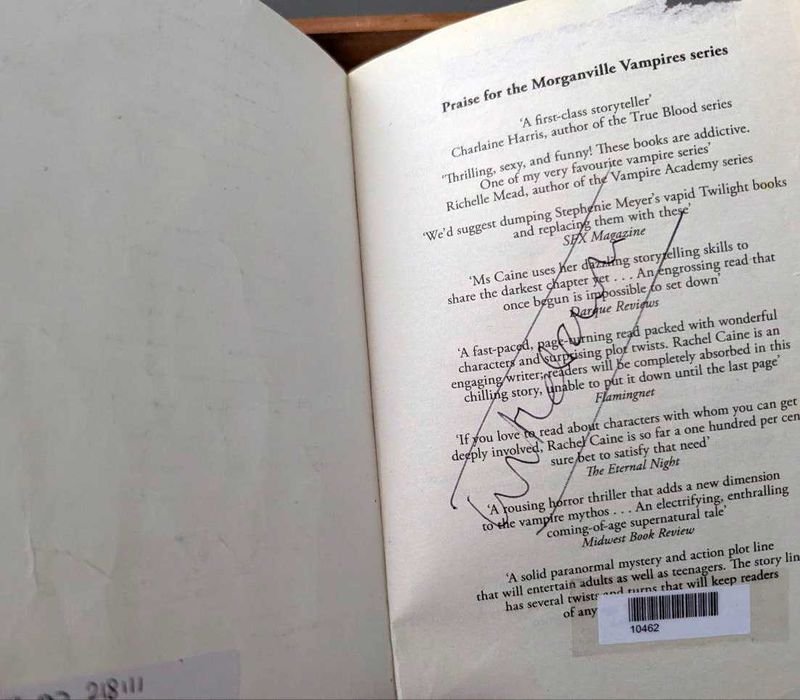 Praise for the Morganville Vampires series
'A first-class storyteller'
Charlaine Harris, author of the True Blood series
'Thrilling, sexy, and funny! These books are addictive.
One of my very favourite vampire series'
Richelle Mead, author of the Vampire Academy series
'We'd suggest dumping Stephenie Meyer's vapid Twilight books
and replacing them with these'
SFX Magazine
'Ms Caine uses her dazzling storytelling skills to
share the darkest chapter yet . . . An engrossing read that
once begun is impossible to set down'
Darque Reviews
'A fast-paced, page-turning read packed with wonderful
characters and surprising plot twists. Rachel Caine is an
engaging writer; readers will be completely absorbed in this
chilling story, unable to put it down until the last page'
Flamingnet
'If you love to read about characters with whom you can get
deeply involved, Rachel Caine is so far a one hundred per cen
sure bet to satisfy that need'
The Eternal Night
'A rousing horror thriller that adds a new dimension
to the vampire mythos . . . An electrifying, enthralling
coming-of-age supernatural tale'
Midwest Book Review
'A solid paranormal mystery and action plot line
that will entertain adults as well as teenagers. The story lin
has several twists and turns that will keep readers
of any
10462
218111